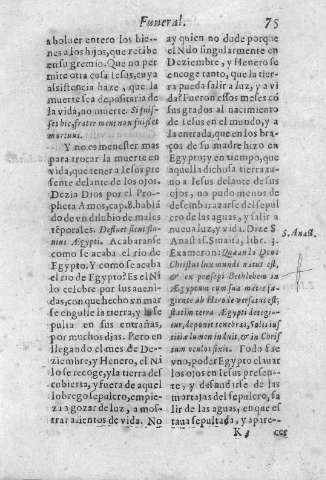 Funeral.
75
a boluer entero los bie-
nes a los hijos, que recibe
en su gremio. Que no per
mite otra cosa Iesus, cuya
assistencia haze, que la
muerte sea depositaria de
la vida, no muerte. Si fuis-
ses hic, frater meus non fuisset
mortuus.
Y no es menester mas
para trocar la muerte en
vida, que tener a Iesus pre
sente delante los ojos.
Dezia Dios por el Pro-
pheta Amos, cap. 8. hablā
do de vn dilubio de males
tēporales. Defluet sicut flu-
uius Ægypti. Acabaranse
como se acaba el rio de
Egypto. Y como se acaba
el rio de Egypto? Es el Ni
lo celebre por sus aueni-
das, con que hecho vn mar
se engulle la tierra, y la se
pulta en sus entrañas,
por muchos dias. Pero en
llegando el mes de De-
ziembre, y Henero, el Ni
lo se recoge, y la tierra des
cubierta, y fuera de aquel
lobrego sepulcro, empie-
za a gozar de luz, a mos-
trar alientos de vida. No
ay quien no dude porque
el Nilo singularmente en
Deziembre, y Henero se
encoge tanto, que la tier-
ra pueda salir a luz, y a vi
da? Fueron essos meses cō
sagrados al nacimiento
de Iesus en el mundo, y a
la entrada, que en los bra-
ços de su madre hizo en
Egypto; y en tiempo, que
aquella dichosa tierra tu-
uo a Iesus delante de sus
ojos, no pudo menos de
desembarazarse del sepul
cro de las aguas, y salir a
nueua luz, y vida. Dize S
Anastas. Sinaita, libr. 3.
Exameron: Quando Deus
Christus lux mundi natus est,
& ex præsepi Bethleem in
Ægyptum cum sua matre fu-
giente ab Herode versatus est,
statim terra Ægypti detegi-
tur, deponit tenebras, solis ius
titiæ lumen induit, & in Chris
tum oculos fixit. Todo es
vno, poder Egypto eleuar
los ojos en Iesus presen-
te, y desnudarse de las
mortajas del sepulcro, sa
lir de las aguas, en que es
taua sepultada, y apare-
S. Anast.
K 4
cer